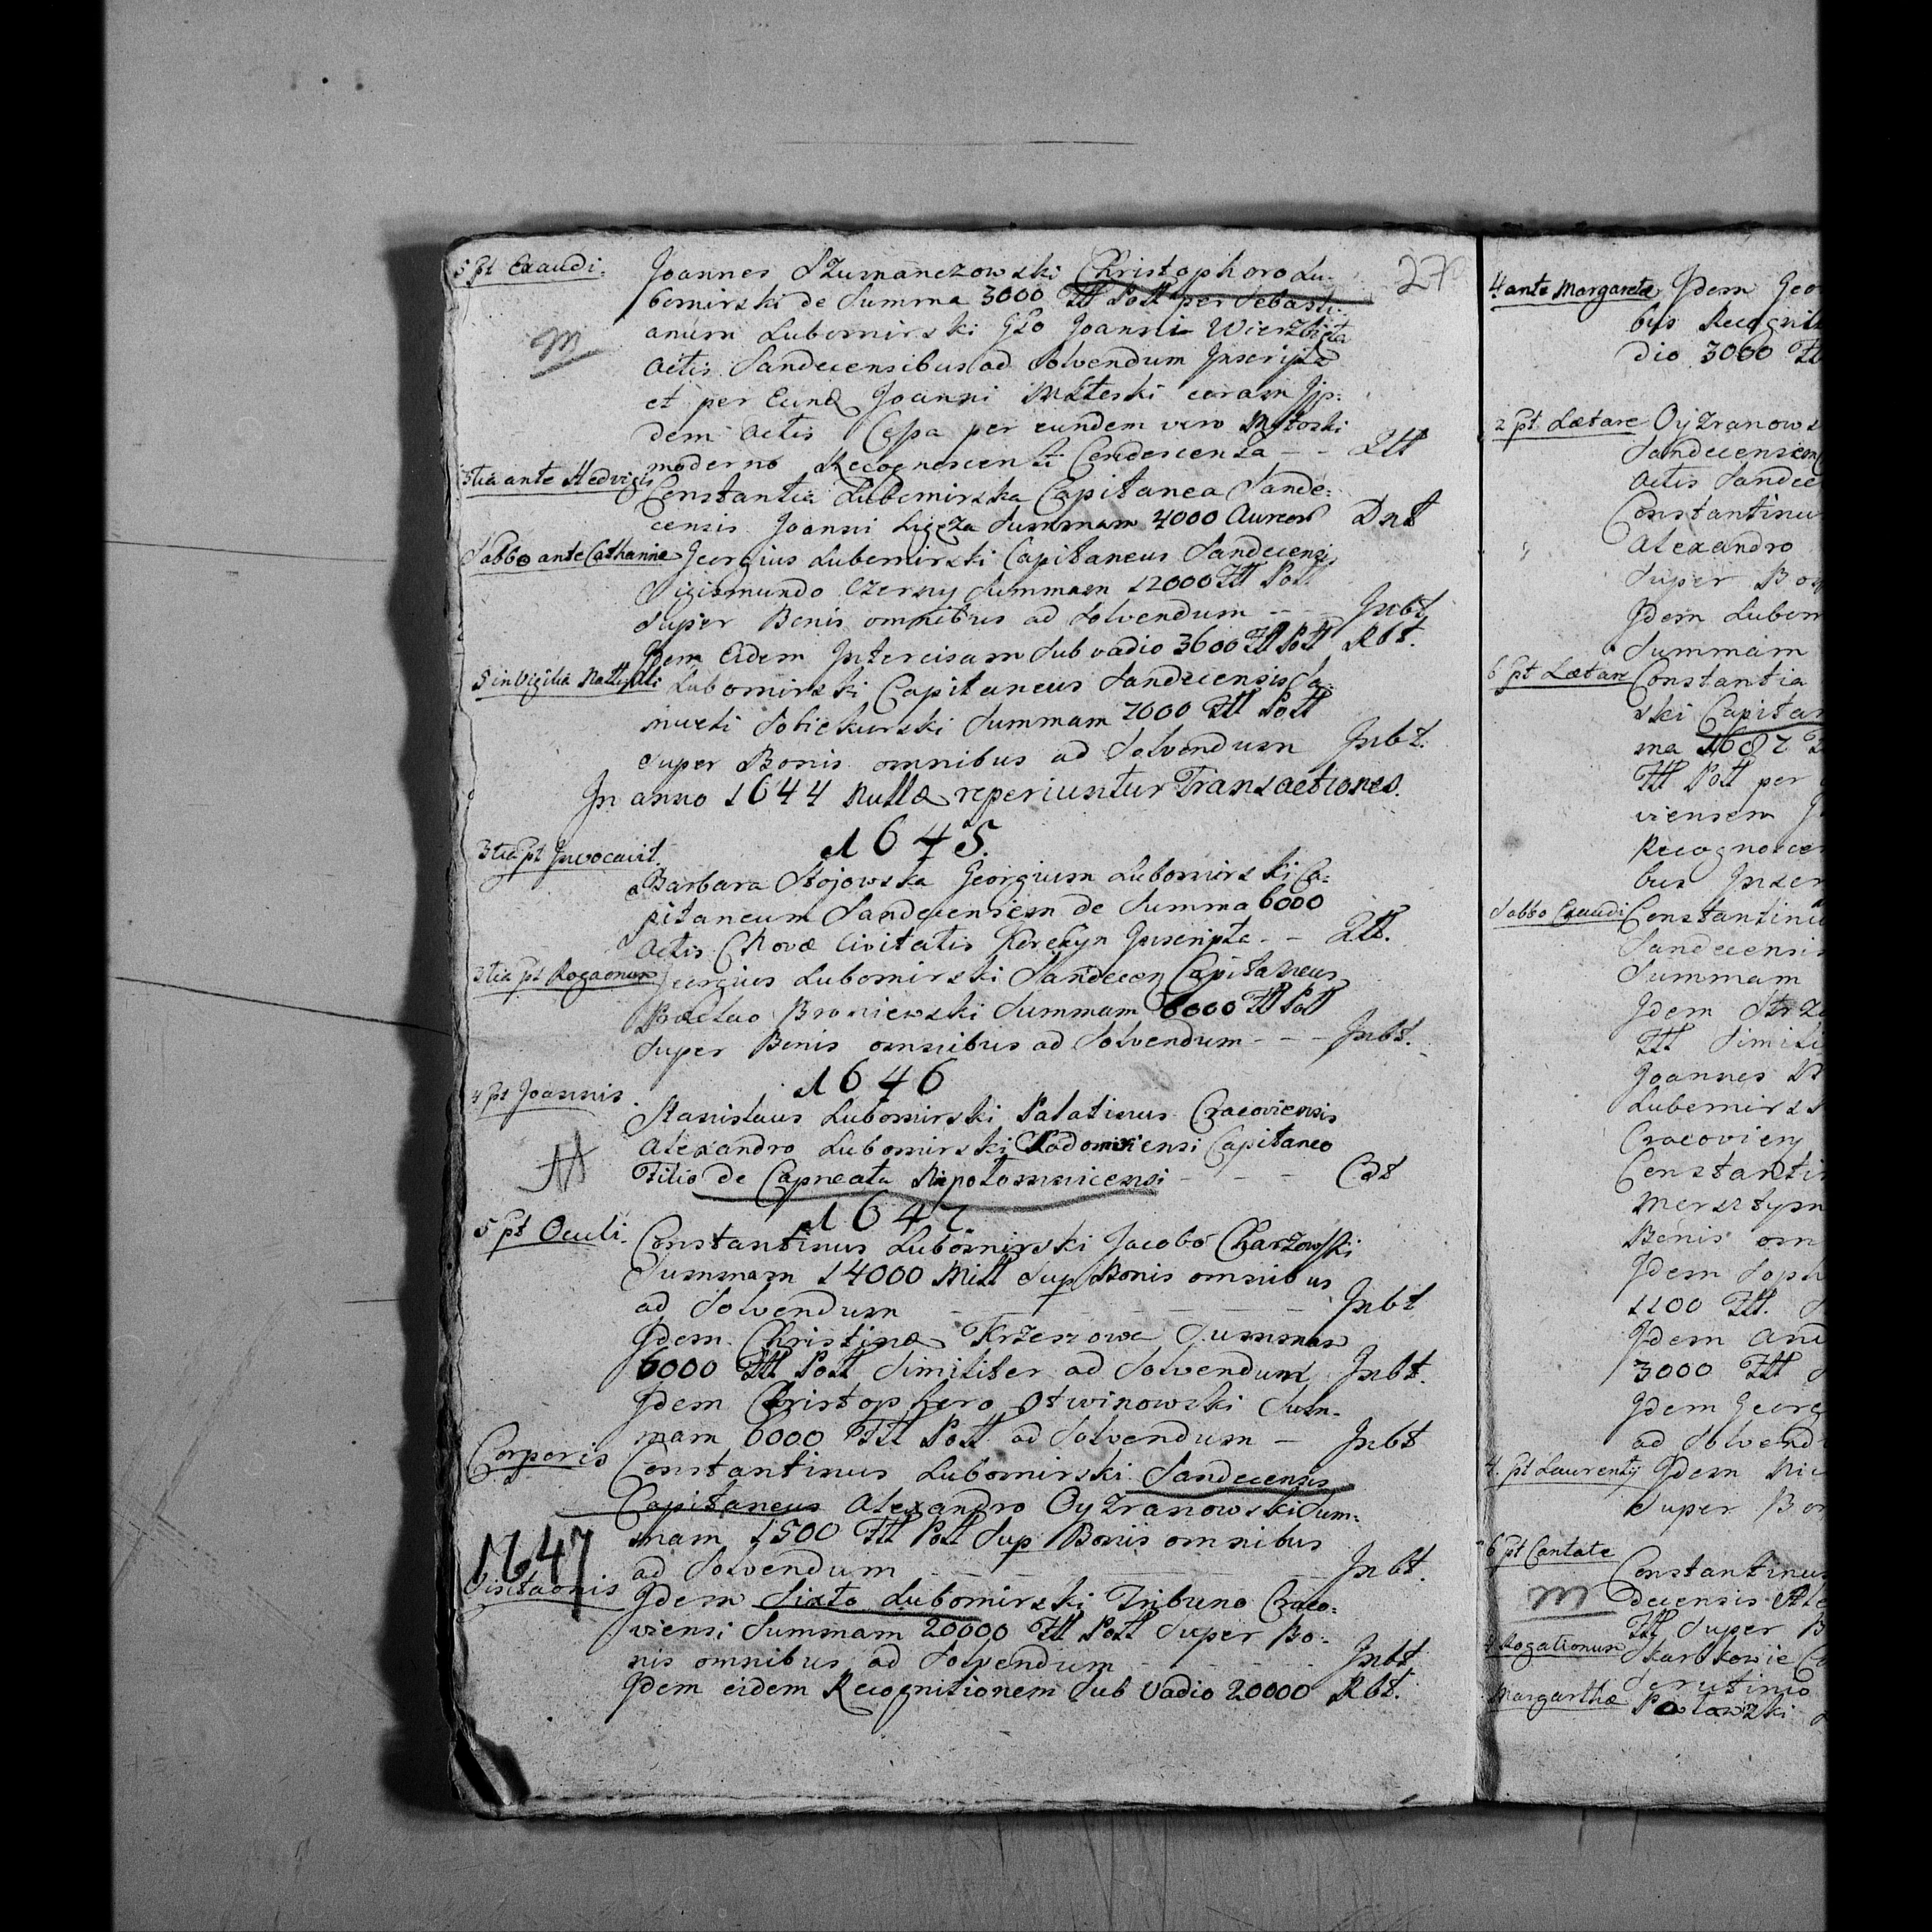 5 pt Exaudi.
Joannes Szumanczowski Christophoro Lu-
27
bomirski de Summa 3000 Ztt Poll per Sebasti-
anum Lubomirski Gso Joanni Wierzbięta
m
Actis Sandecensibus ad Solvendum Inscripta
et per Eund Joanni coram Iis-
dem Actis Cessa per eundem vero
moderno Recognoscenti Condescensa - - Qtt
3tia ante Hedvigis
Constantia Lubomirska Capitanea Sande-
censis Joanni Ligęza Summam 4000 Aureor Dnt
Sabbo ante Catharinæ
Georgius Lubomirski Capitaneus Sandecensis
Sigismundo Czerny Summam 12000 Ztt Poll
Super Bonis omnibus ad Solvendum - - - Inbt
Idem Eidem Intercisam Sub vadio 3600 Ztt Poll Rbt.
5 in Vigilia
Lubomirski Capitaneus Sandecensis Sa-
mueli Sobiekurski Summam 7000 Ztt Poll
Super Bonis omnibus ad Solvendum Inbt.
In anno 1644 Nullæ reperiuntur Transactiones.
1645.
3tia pt Invocavit.
Barbara Stojowska Georgium Lubomirski Ca-
pitaneum Sandecensem de Summa 6000
Actis Novæ Civitatis Korczyn Inscripta - - Qtt.
3tia pt Rogaonum
Georgius Lubomirski Sandecen Capitaneus
Broniewski Summam 6000 Ztt Poll
Super Bonis omnibus ad Solvendum - - - Inbt.
1646
4 pt Joannis.
Stanislaus Lubomirski Palatinus Cracoviensis
Alexandro Lubomirski Sadomiriensi Capitaneo
Filio de Capneata Niepolomnicensi - - - Cdt
1647.
5 pt Oculi.
Constantinus Lubomirski Jacobo Charzowski
Summam 14000 Mill Sup Bonis omnibus
ad Solvendum - - - - - - Inbt
Idem Christinæ Krzeszowa Summam
6000 Ztt Poll Similiter ad Solvendum Inbt.
Idem Christophero Otwinowski Sum-
mam 6000 Ztt Poll ad Solvendum - Inbt
Corporis
Constantinus Lubomirski Sandecensis
Capitaneus Alexandro Oyzranowski Sum-
mam 1500 Ztt Poll Sup Bonis omnibus
1647
ad Solvendum - - - - - - Inbt.
Visitaonis
Idem Sixto Lubomirski Tribuno Craco-
viensi Summam 20000 Ztt Poll Super Bo-
nis omnibus ad Solvendum - - - - Inbt
Idem eidem Recognitionem Sub Vadio 20000 Rbt.
4 ante Margaretæ Idem Geo
bus Recognit
dio 3000 Zt
2 pt Lætare Oyzranows
Sandecensem
Actis Sandec
Constantinu
Alexandro
Super Bo
Idem Lubom
Summam
6 pt Lætare Constantia
ski Capitan
ma
Ztt Poll per
viensem
Recognoscen
bus Inser
Sabbo Exaudi Constantinu
Sandecensis
Summam
Idem Strze
Ztt Simili
Joannes
Lubomirs
Cracovien
Constanti
Mersztyn
Bonis om
Idem Soph
1100 Ztt.
Idem And
3000 Ztt
Idem Georg
ad Solvend
4. pt Laurentij Idem Nic
Super Bo
6 pt Cantate
Constantinus
m
decensis Ale
Ztt Super B
4 Rogationum Skarbkowie
Scrutinio
Margarthæ